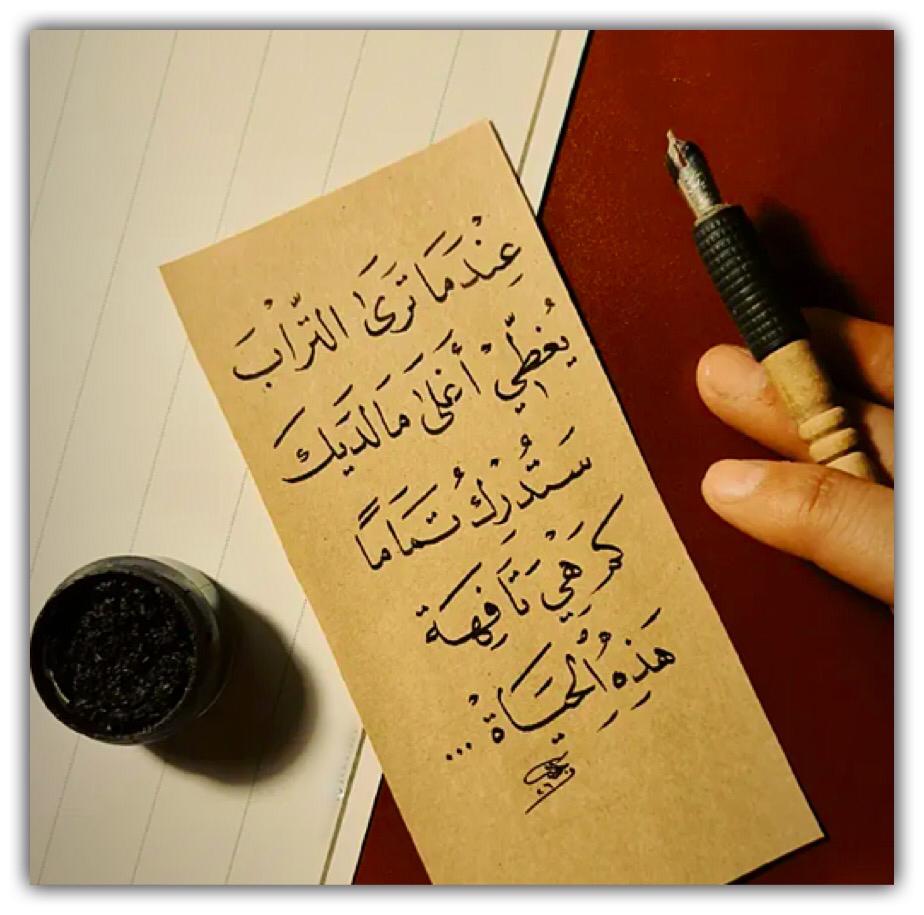 عِنْدَمَا تَرَىٰ التّرَابْ
يُغطِّيْ أَغلَىٰ مَا لَدَيكَ
سَتُدرِكُ تمَامَاً
كَم هْيَ تَافِهَة
هَذِهِ الْحَيَاةْ ...